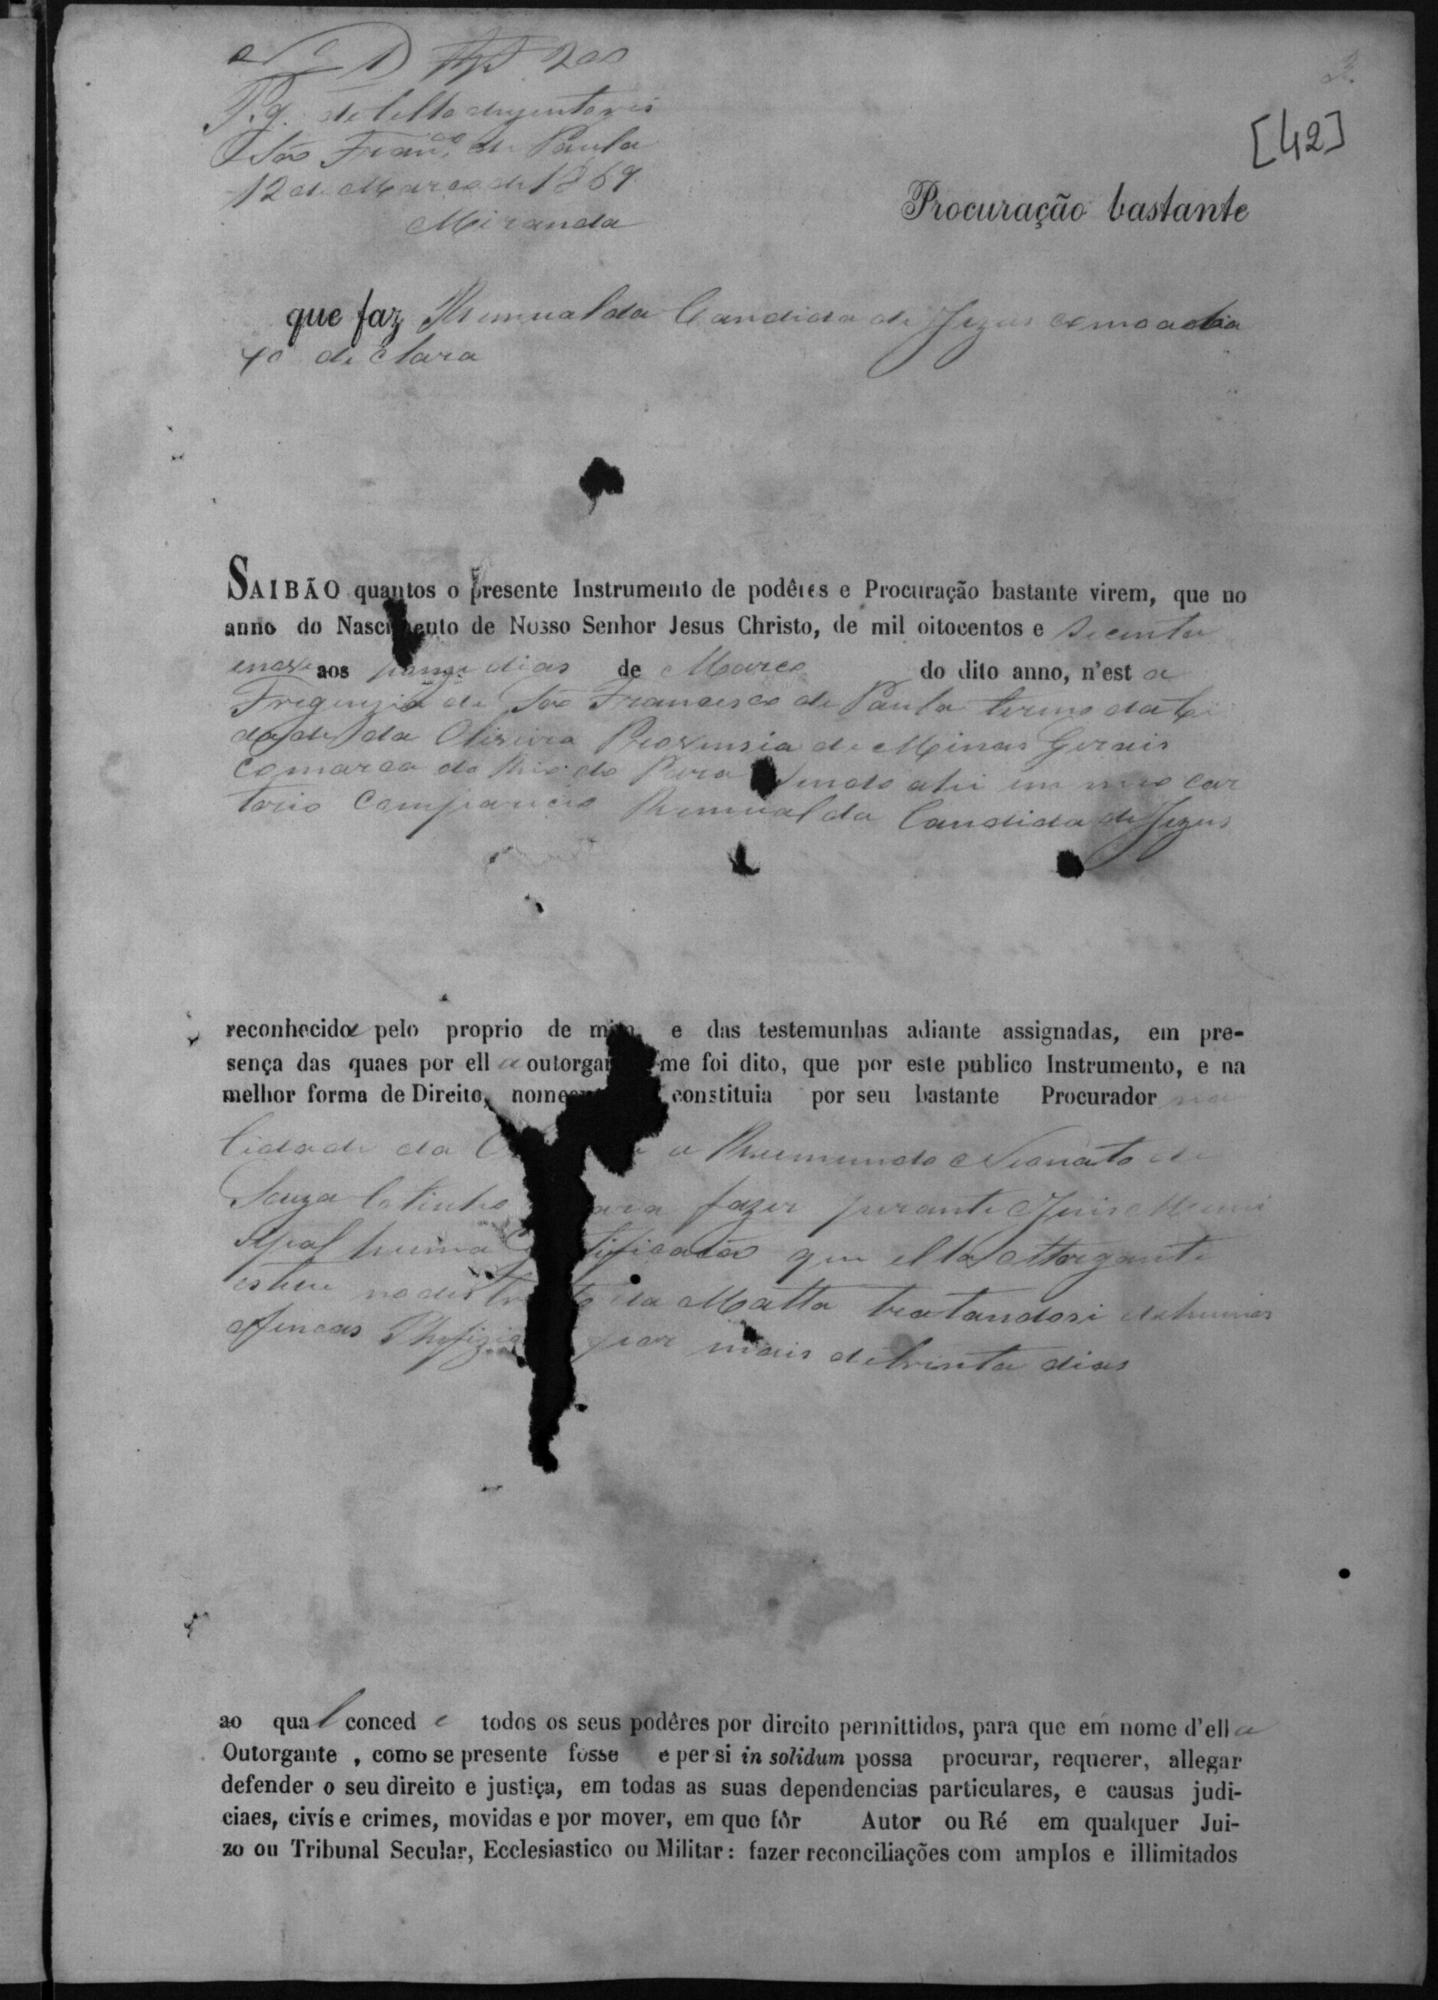 Nº 1 200
Pg. de sello duzentos reis
São Franco. de Paula
12 de Março de 1869
Miranda
[42]
Procuração bastante
que faz Rumualda Candida de Jezus como a bai
xo declara
SAIBÃO quantos o presente Instrumento de podêres e Procuração bastante virem, que no
anno do Nascimento de Nosso Senhor Jesus Christo, de mil oitocentos e secenta
enove aos dias de Março do dito anno, n'est a
Freguezia de São Francisco de Paula termo da Ci
dade da Oliveira Provinsia de Minas Gerais
comarca do Rio do Para sendo ahi em meo car
torio compareceo Rumualda Candida de Jezus
reconhecida pelo proprio de mim, e das testemunhas adiante assignadas, em pre-
sença das quaes por ell a outorgan me foi dito, que por este publico Instrumento, e na
melhor forma de Direito, nomea constituia por seu bastante Procurador na
Cidade da O a Raimundo Nonato de
Souza Cotinho para fazer perante Juis Muni
sipal huma tificação que ella ottorgante
esteve no destrito da Matta tratandosi de humas
por mais de trinta dias
ao qual concede todos os seus podêres por direito permittidos, para que em nome d'ella
Outorgante , como se presente fosse e per si in solidum possa procurar, requerer, allegar
defender o seu direito e justiça, em todas as suas dependencias particulares, e causas judi-
ciaes, civís e crimes, movidas e por mover, em que fôr Autor ou Ré em qualquer Jui-
zo ou Tribunal Secular, Ecclesiastico ou Militar: fazer reconciliações com amplos e illimitados